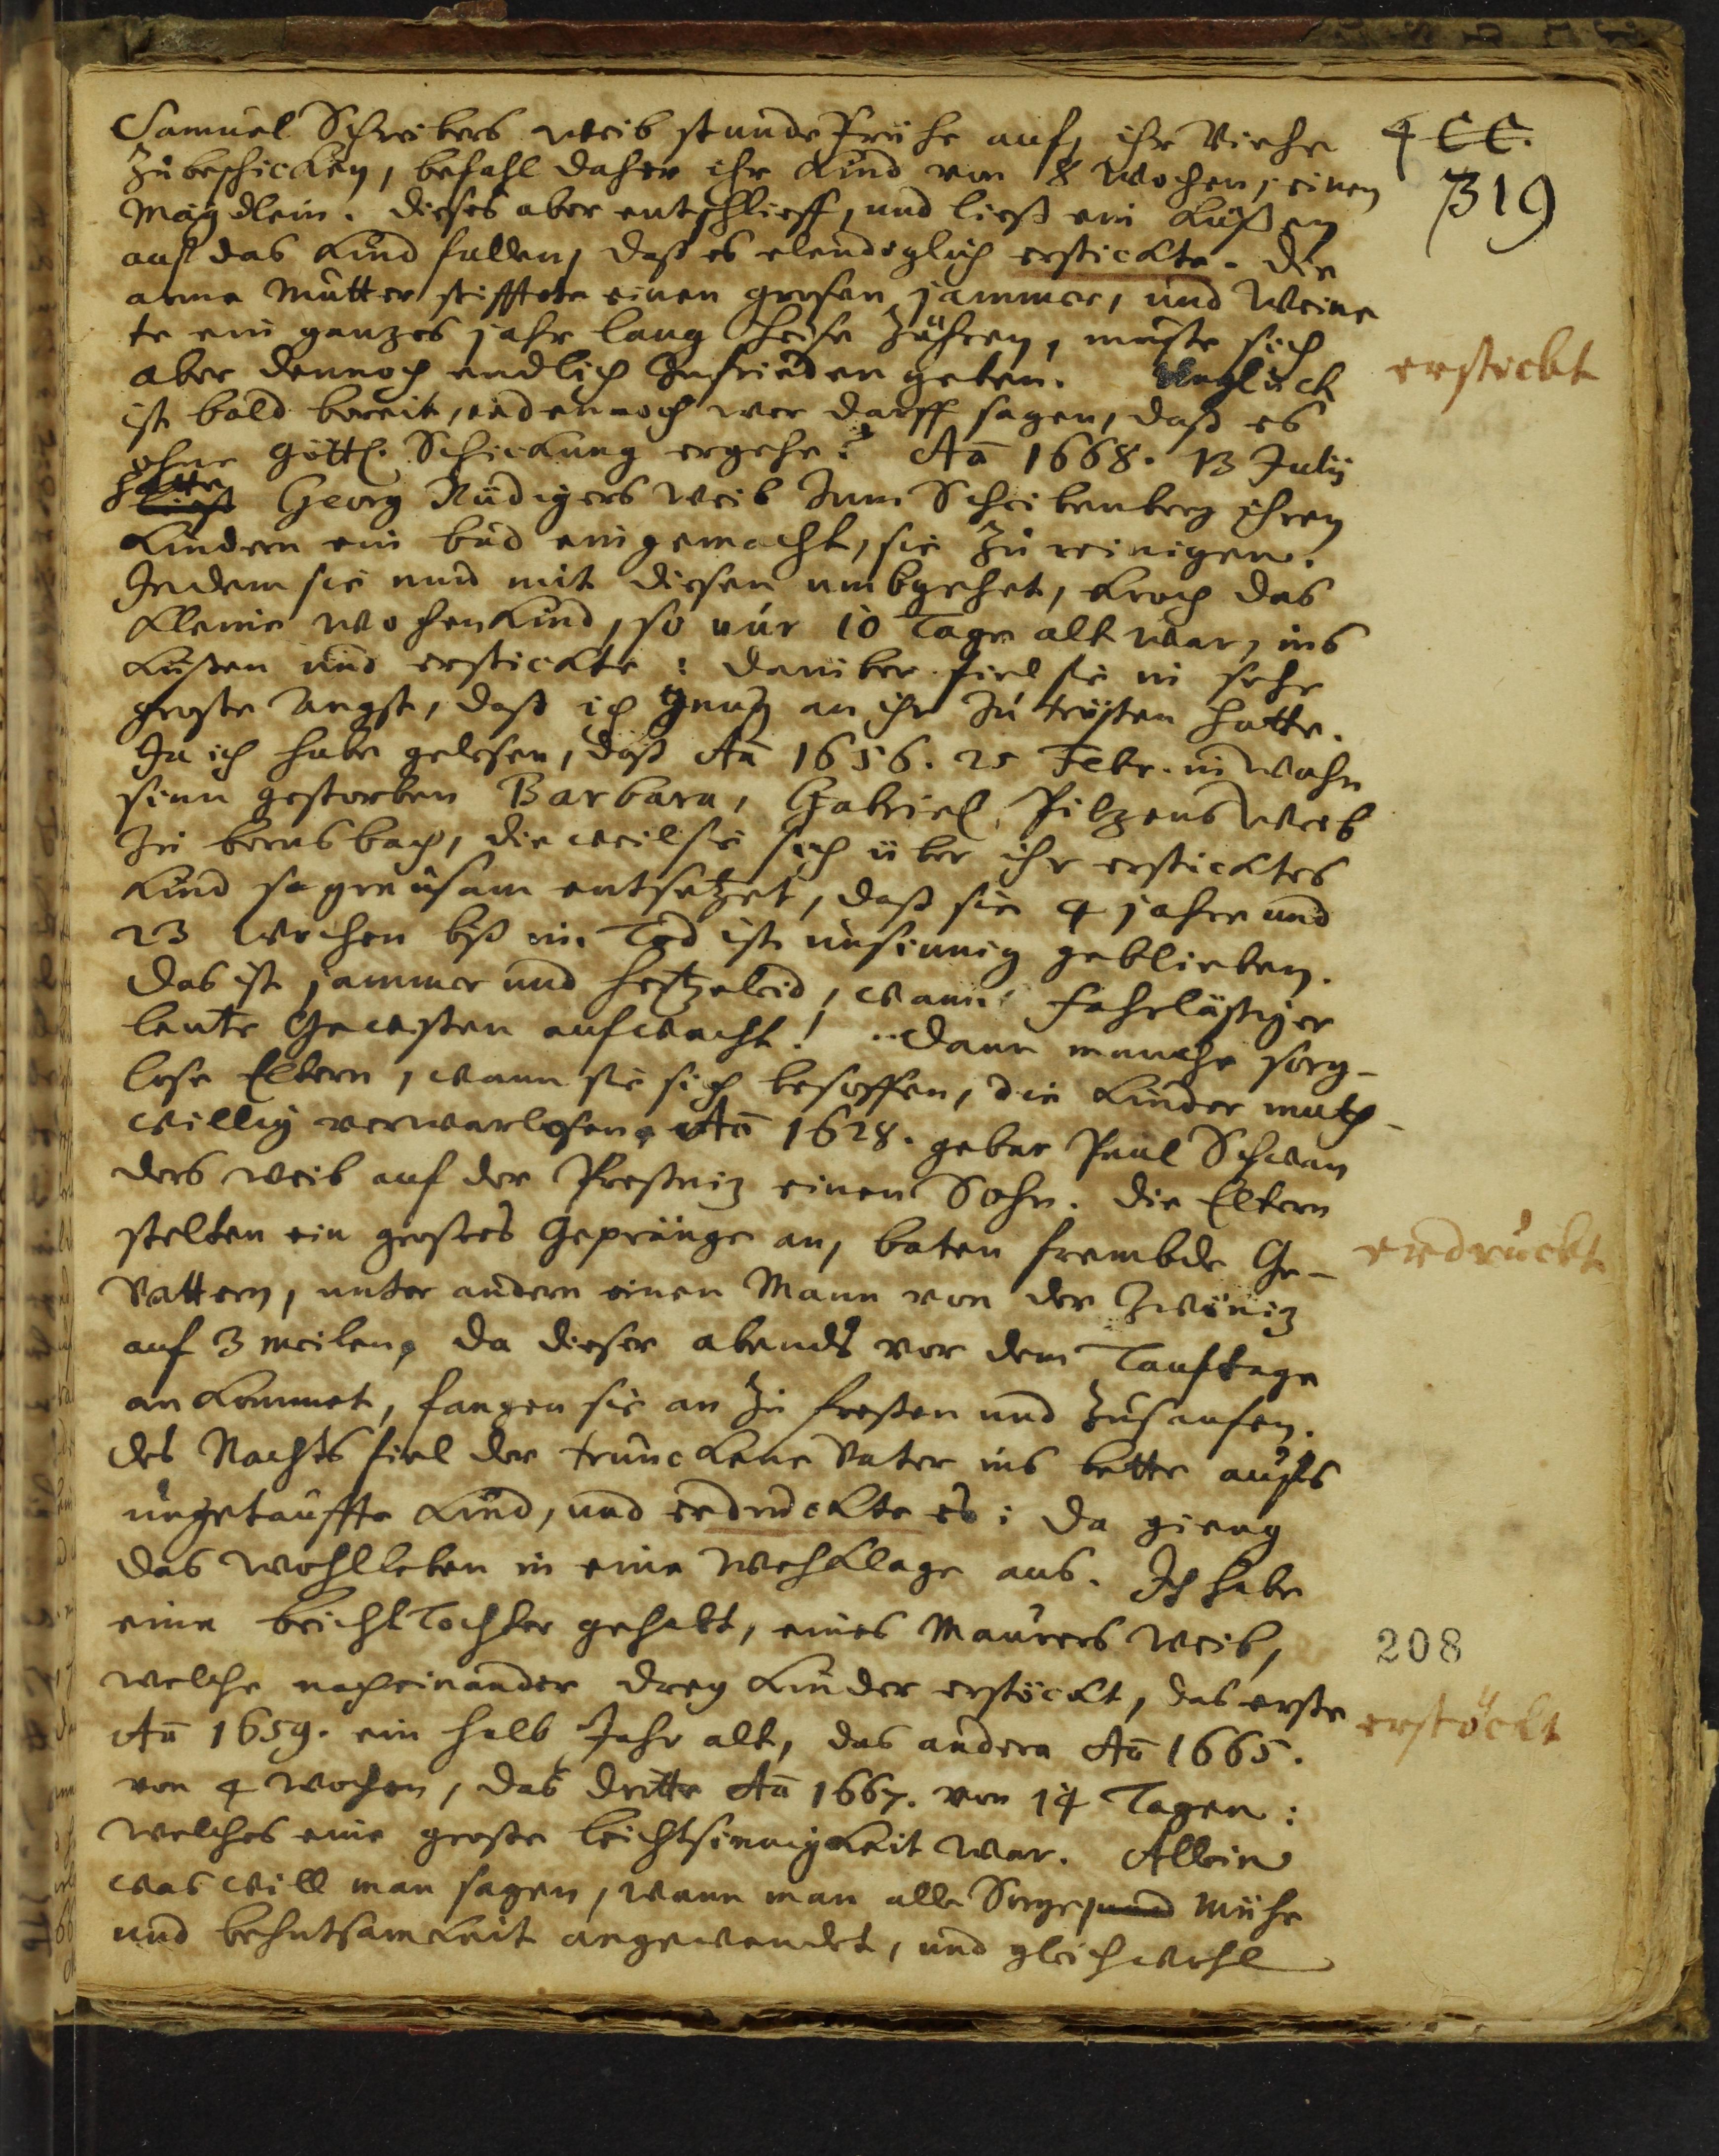 Samuel Schreibers weib stunde frühe auf, ihr Viehe
zubeschicken, befahl daher ihr Kind von 8 wochen, einen
Mägdlein. dieses aber entschlieff, und ließ ein Küßen
auf das Kind fallen, daß es elendiglich erstickte. die
arme Mutter stifftete einen grosen jammer, und Weine
te ein ganzes jahr lang heise Zähren, muste sich
aber dennoch endlich zufrieden geben. Unglück
ist bald bereit, und dennoch wer darff sagen, daß es
ohne göttl. Schickung ergehe? Aō 1668. 13 Julij
hatte Georg Rüdigers Weib zum Scheibenberg ihren
Kindern ein bad eingemacht, sie zu reinigen.
Indem sie nun mit diesen umbgehet, kroch das
kleine wochenkind, so nur 10 Tage alt war, ins
Küßen und erstickte: darüber fiel sie in sehr
große Angst, daß ich genug an ihr zu trösten hatte.
Ja ich habe gelesen, daß Aō 1656. 25 Febr. in wahn
sinn gestorben Barbara, Gabriel Pilzens Weib
zu bernsbach, die weil sie sich über ihr ersticktes
Kind so greusam entsetzet, daß sie 4 jahre und
23 wochen biß in Tod ist unsinnig geblieben.
das ist jammer und hertzeleid, wann fahrläßiger
leute Gewißen aufwacht! dann manche sorg-
lose Eltern, wann sie sich besoffen, die Kinder muth-
willig verwarlosen. Aō 1628. gebar Paul Schwan
ders weib auf der Preßniz einen Sohn. die Eltern
stelten ein großes Gepränge an, baten frembde Ge-
vattern, unter andern einen Mann von der Zwöniz
auf 3 meilen, da dieser abends vor dem Tauftage
an kommet, fangen sie an zu freßen und zusaufen.
des Nachts fiel der trunckene Vater ins bette aufs
ungetauffte Kind, und erdruckte es: da gieng
das wohlleben in eine wehklage aus. Ich habe
eine beichttochter gehabt, eines Maurers Weib,
welche nacheinander drey Kinder erstöckt, das erste
Aō 1659. ein halb Jahr alt, das andere Aō 1665.
von 4 wochen, das dritte Aō 1667. von 14 Tagen:
welches eine große leichtsinnigkeit war. Allein
was will man sagen, wann man alle Sorge, und Mühe
und behutsamkeit angewendet, und gleichwohl
4 CC.
319
erstickt
erdruckt
208
erstöckt